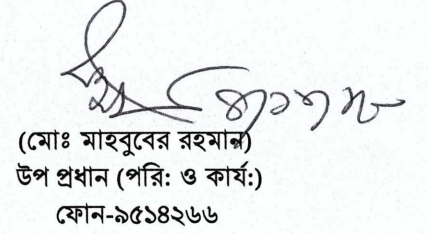 (মোঃ মাহবুবের রহমান)
উপ প্রধান (পরি: ও কার্য:)
ফোন-৯৫১৪২৬৬